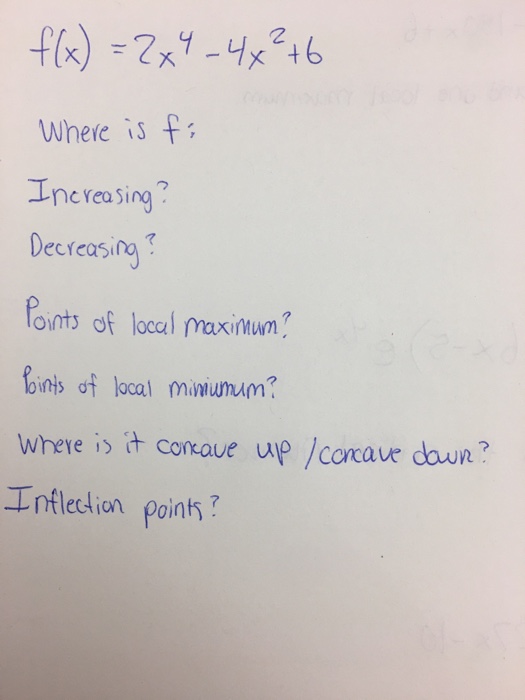 f(x) = 2x⁴ - 4x² + 6
Where is f:
Increasing?
Decreasing?
Points of local maximum?
Points of local miniumum?
Where is it concave up / concave down?
Inflection points?